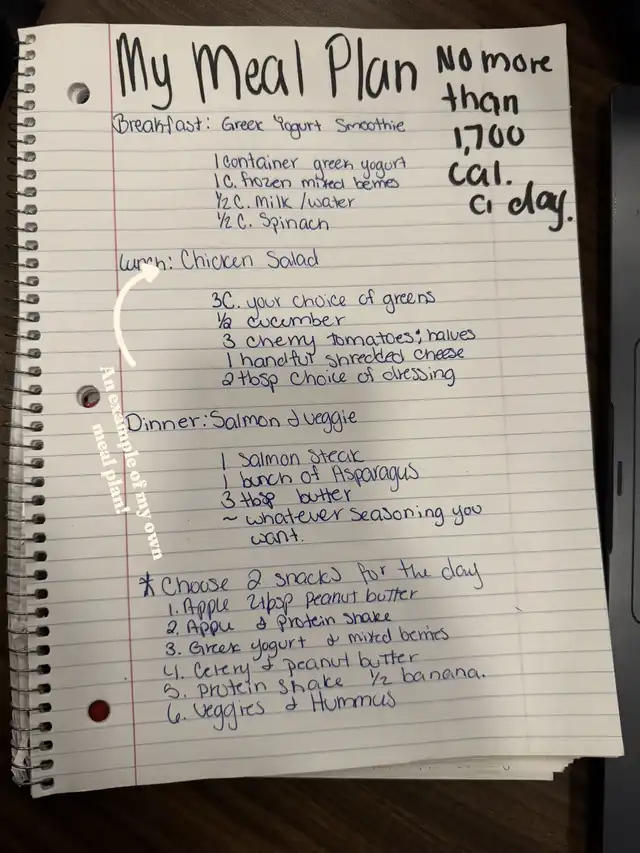 My Meal Plan
No more
than
1,700
cal.
a day.
Breakfast: Greek Yogurt Smoothie
1 container greek yogurt
1 C. frozen mixed berries
½ C. Milk /water
½ C. Spinach
Lunch: Chicken Salad
3C. your choice of greens
½ cucumber
3 cherry tomatoes; halves
1 handful shredded cheese
2 tbsp choice of dressing
An example of my own
meal plan!
Dinner: Salmon & veggie
1 salmon steak
1 bunch of Asparagus
3 tbsp butter
~ whatever seasoning you
want.
* Choose 2 snacks for the day
1. Apple 2tbsp peanut butter
2. Apple & protein shake
3. Greek yogurt & mixed berries
4. Celery & peanut butter
5. protein shake ½ banana.
6. Veggies & Hummus